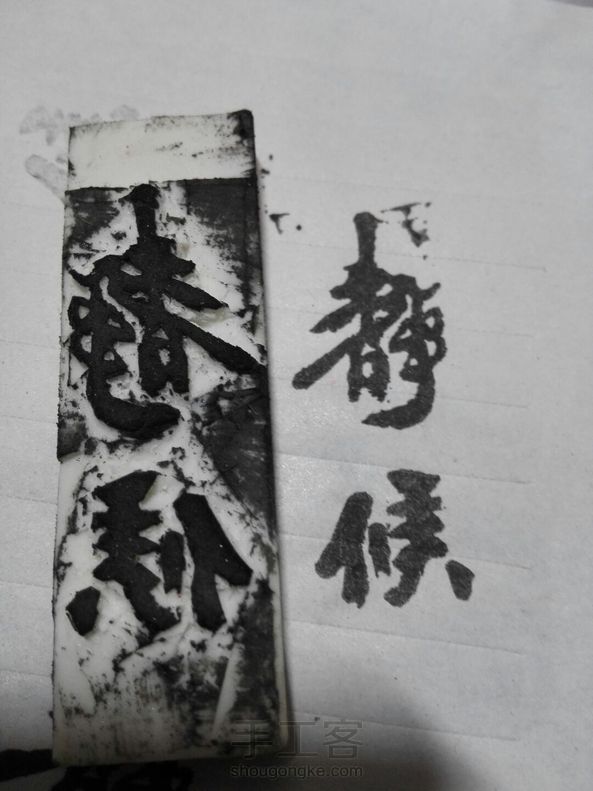 静候
手工客
shougongke.com